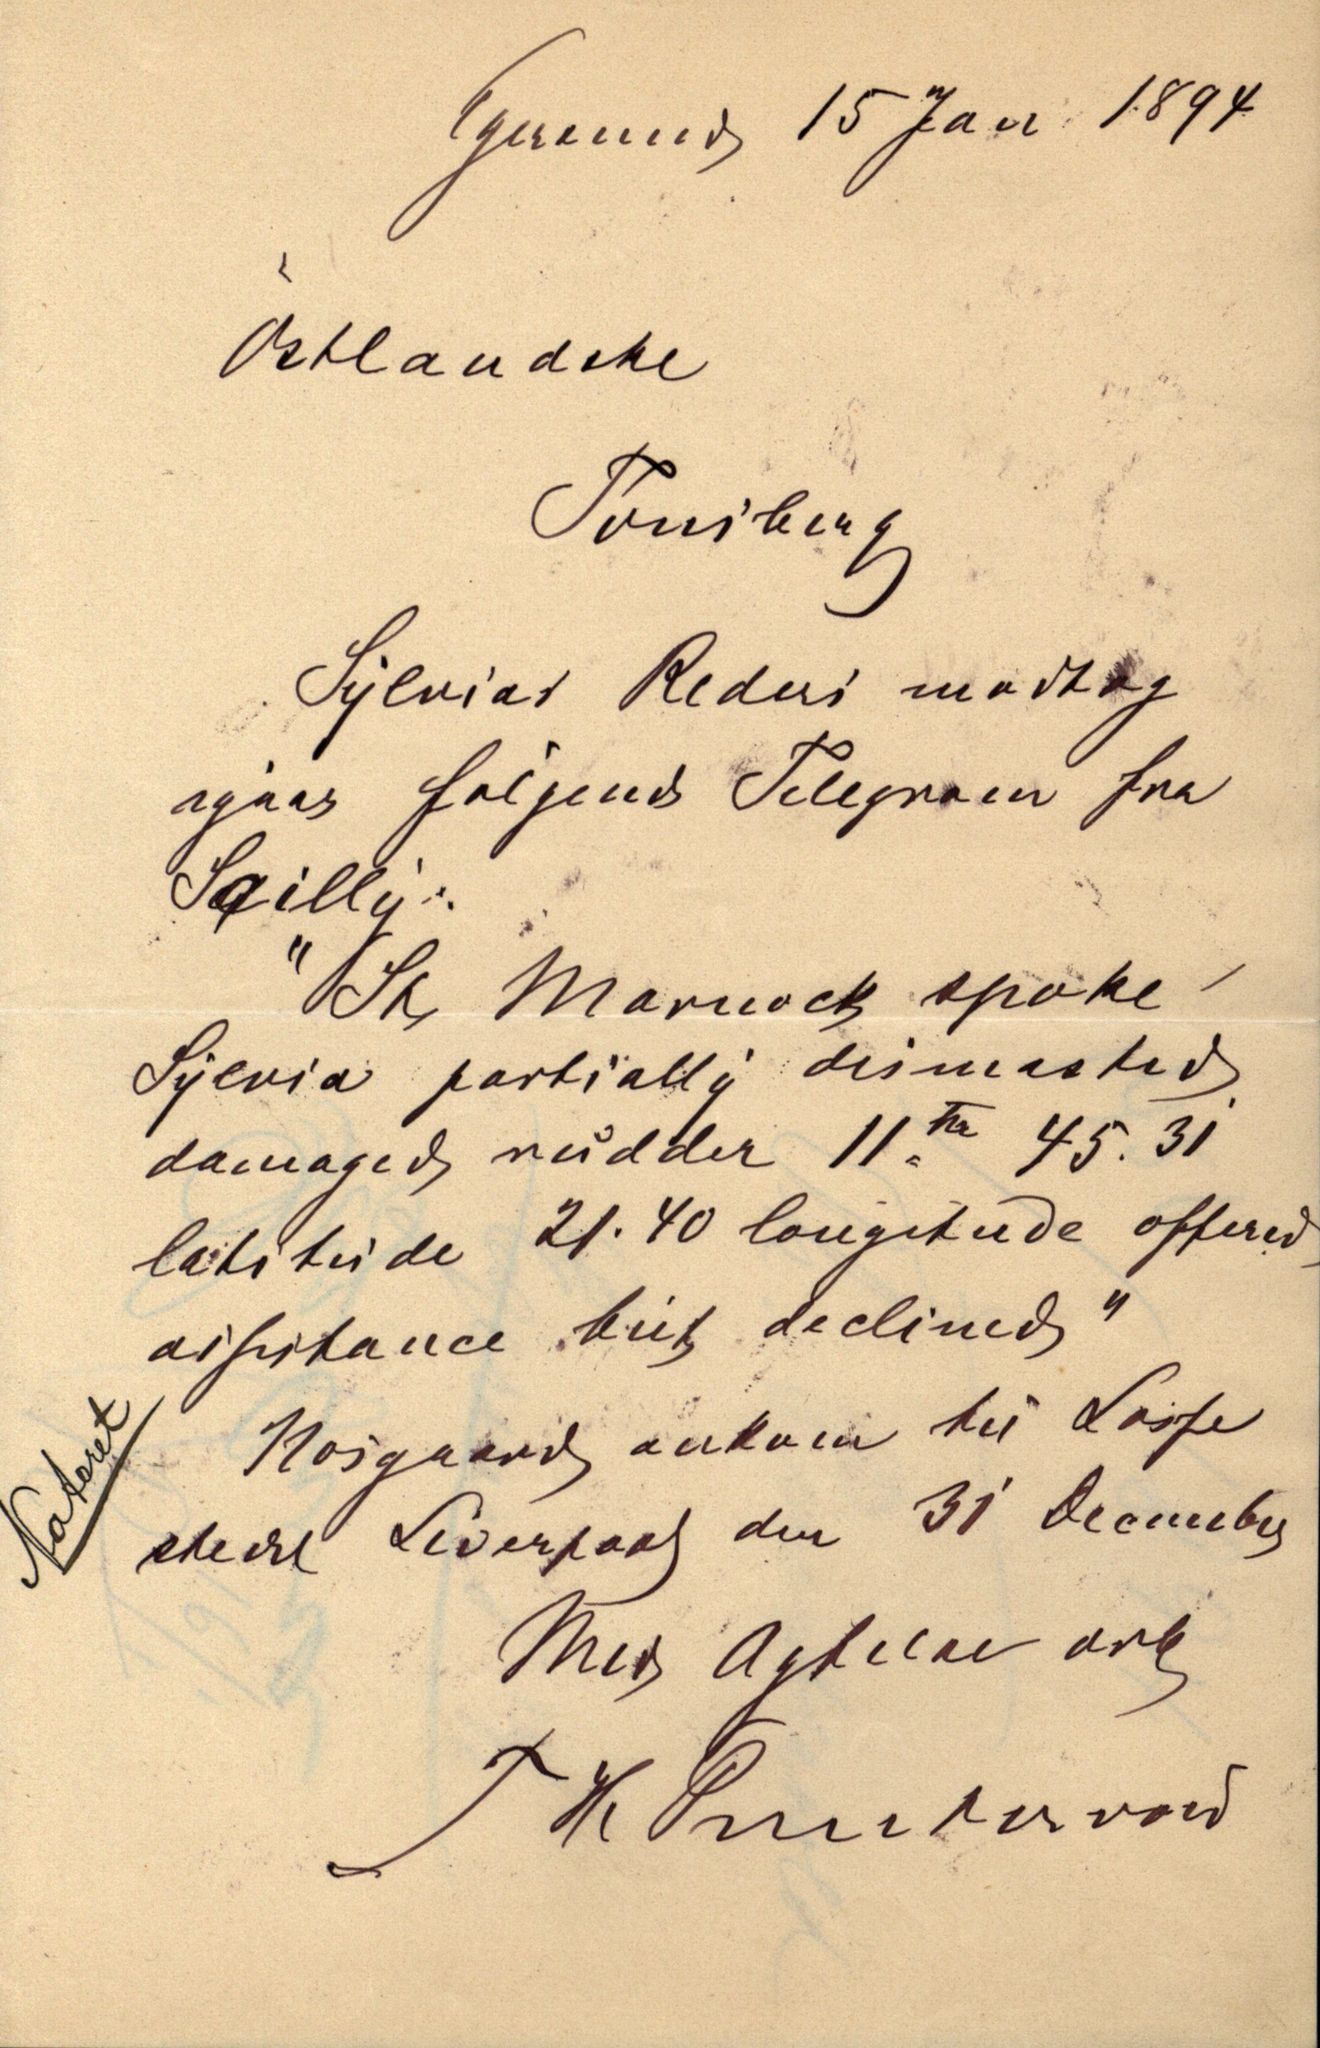 Egersund 15 Jan 1894
Østlandske
Tønsberg
Sylvias Rederi modtog
igaar følgende Telegram fra
Scilly:
"St Marnock spoke
Sylvia partially dismasted
damaged rudder 11th 45.31
latitude 21.40 longitude offered
assistance but declined"
Nosgaard ankom til Losse
stedet Liverpool den 31 December
Noteret
Med Agtelse erb
T H Puntervold